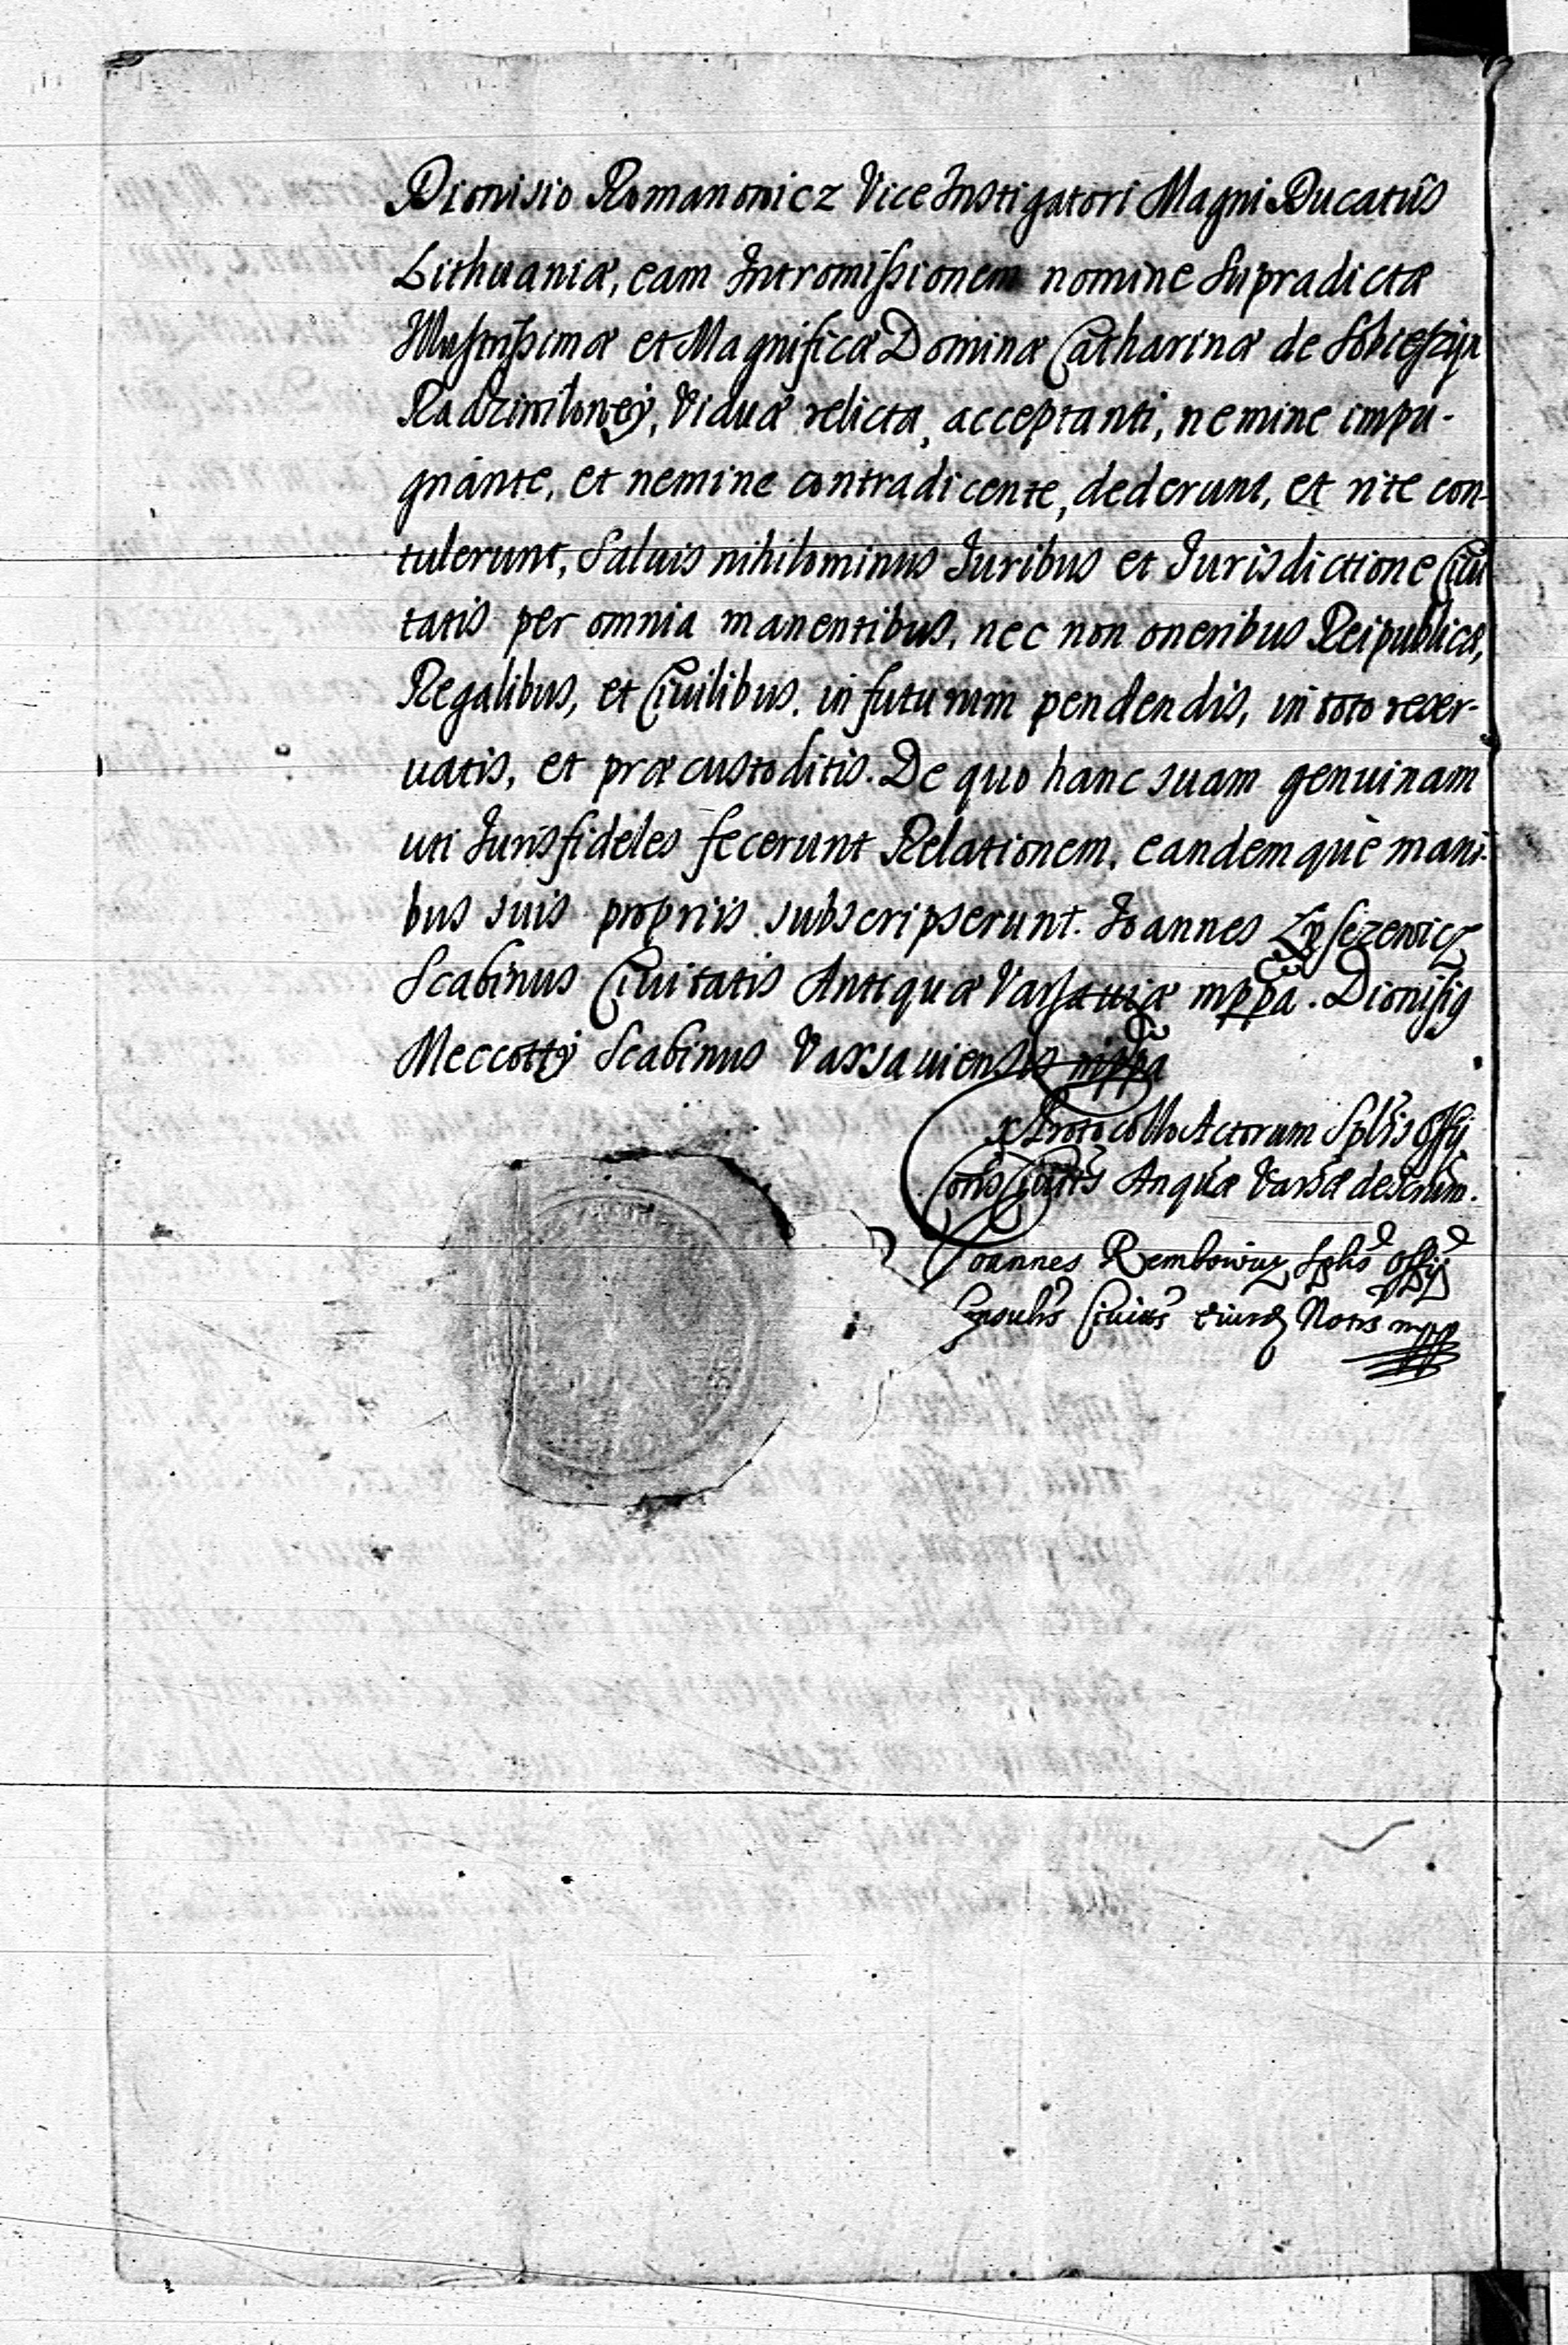 Dionisio Romanowicz Vice Instigatori Magni Ducatûs
Lithuaniæ, eam Intromißionem nomine supradictæ
Illustrißimæ et Magnificæ Dominæ Catharinæ de Sobieszyn
Radziwiłowey, Viduæ relictæ, acceptanti, nemine impu-
gnante, et nemine contradicente, dederunt, et rite con-
tulerunt, Saluis nihilominus Iuribus et Iurisdictione Ciui
tatis per omnia manentibus, nec non oneribus Reipublicæ,
Regalibus, et Ciuilibus, in futurum pendendis, in toto reser-
uatis, et præcustoditis. De quo hanc suam genuinam
uti Iurisfideles fecerunt Relationem, eandemquè mani-
bus suis propriis subscripserunt. Ioannes Łyszczewicz
Scabinus Ciuitatis Antiquæ Varsauiæ mppa. Dionisig
Meccotty Scabinus Varsauiensis mppa
Ex Protocollo Actorum Splis Offy
Conlis Ciuitis Anquæ Varsæ descrium.
Ioannes Splis Offij
Consulis Ciuitis eiusd Notrs mpp